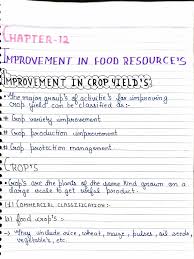 CHAPTER-12
IMPROVEMENT IN FOOD RESOURCE'S
IMPROVEMENT IN CROP YIELD'S
• The major group's of activitie's for improving
crop yield can be classified as:-
# Crop variety improvement
# Crop production improvement
# Crop protection management
CROP'S
• Crop's are the plants of the same kind grown on a
large scale to get useful product.
(1) COMMERCIAL CLASSIFICATION:-
a) food crop's =
• They include rice, wheat, maize, pulses, oil seeds,
vegetable's, etc.